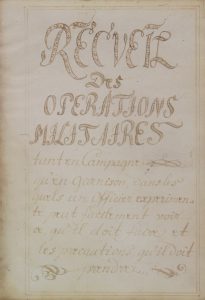 RECVEIL
DES
OPERATIONS
MILITAIRES
tant en Campagne
qu'en Garnison, dans les
quels un Officier experimen-
té peut facilement voir
ce qu'il doit faire, et
les precautions qu'il doit
prendre